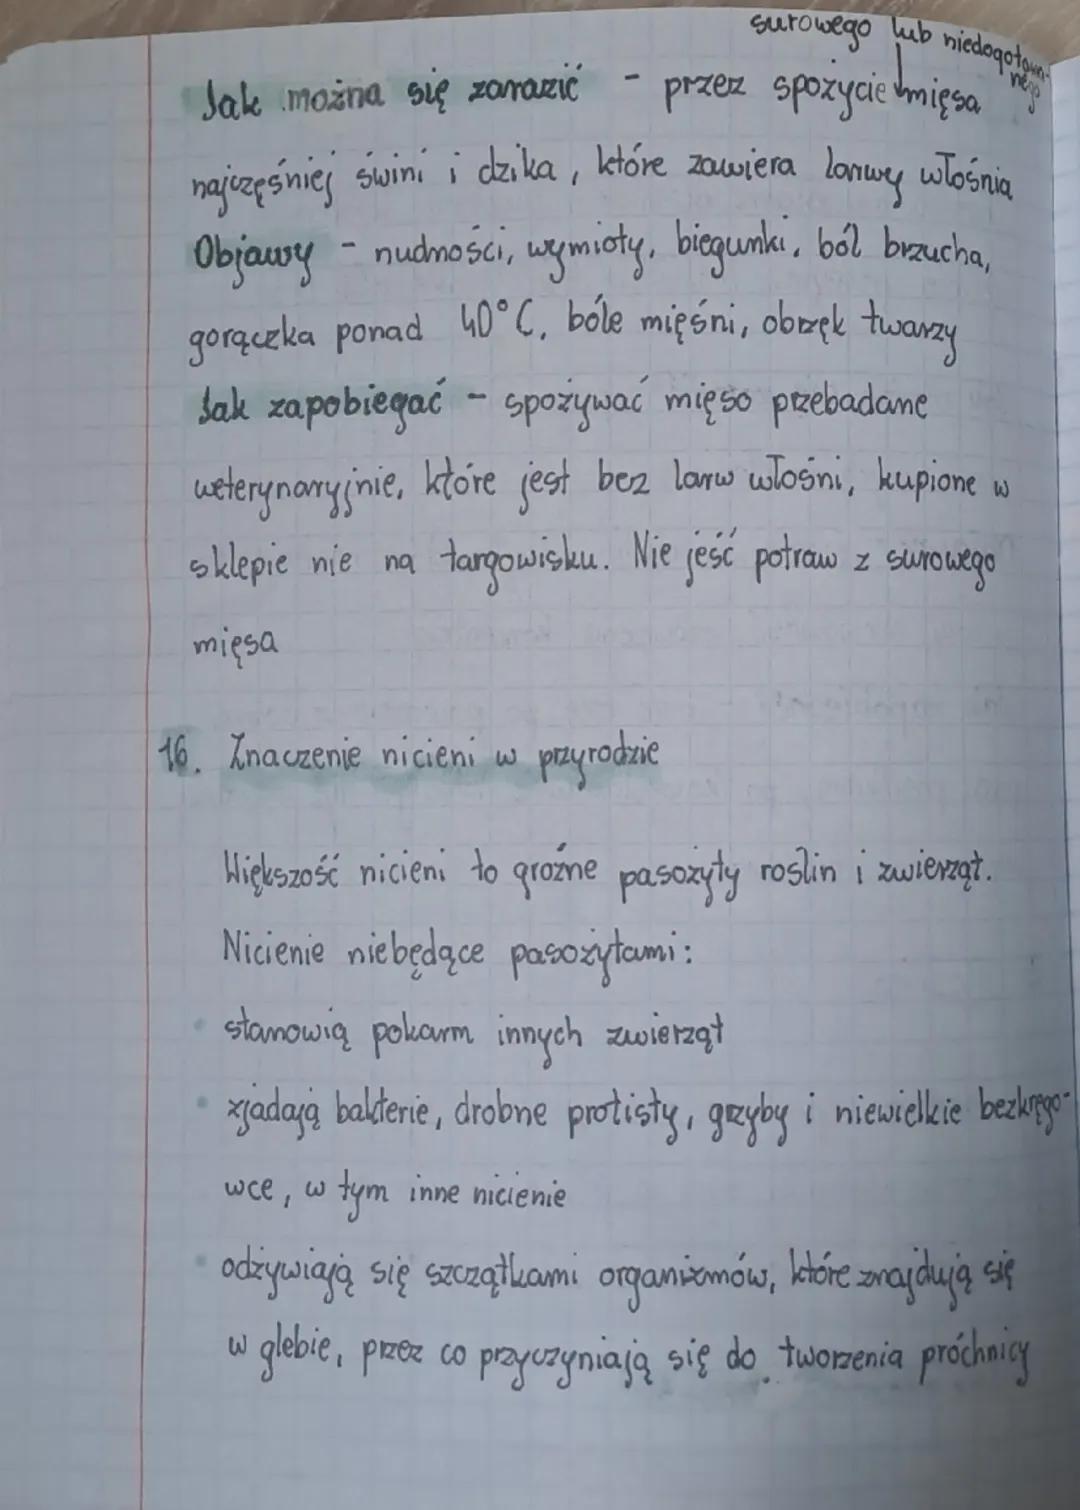 surowego lub niedogotowa-
nego
Jak można się zarazić - przez spożycie mięsa
najczęśniej świni i dzika, które zawiera larwy włośnia
Objawy - nudności, wymioty, biegunki, ból brzucha,
gorączka ponad 40°C, bóle mięśni, obrzęk twarzy
Jak zapobiegać - spożywać mięso przebadane
weterynaryjnie, które jest bez larw włośni, kupione w
sklepie nie na targowisku. Nie jeść potraw z surowego
mięsa
16. Znaczenie nicieni w przyrodzie
Większość nicieni to groźne pasożyty roślin i zwierząt.
Nicienie niebędące pasożytami:
• stanowią pokarm innych zwierząt
• zjadają bakterie, drobne protisty, grzyby i niewielkie bezkręgo-
wce, w tym inne nicienie
• odżywiają się szczątkami organizmów, które znajdują się
w glebie, przez co przyczyniają się do tworzenia próchnicy